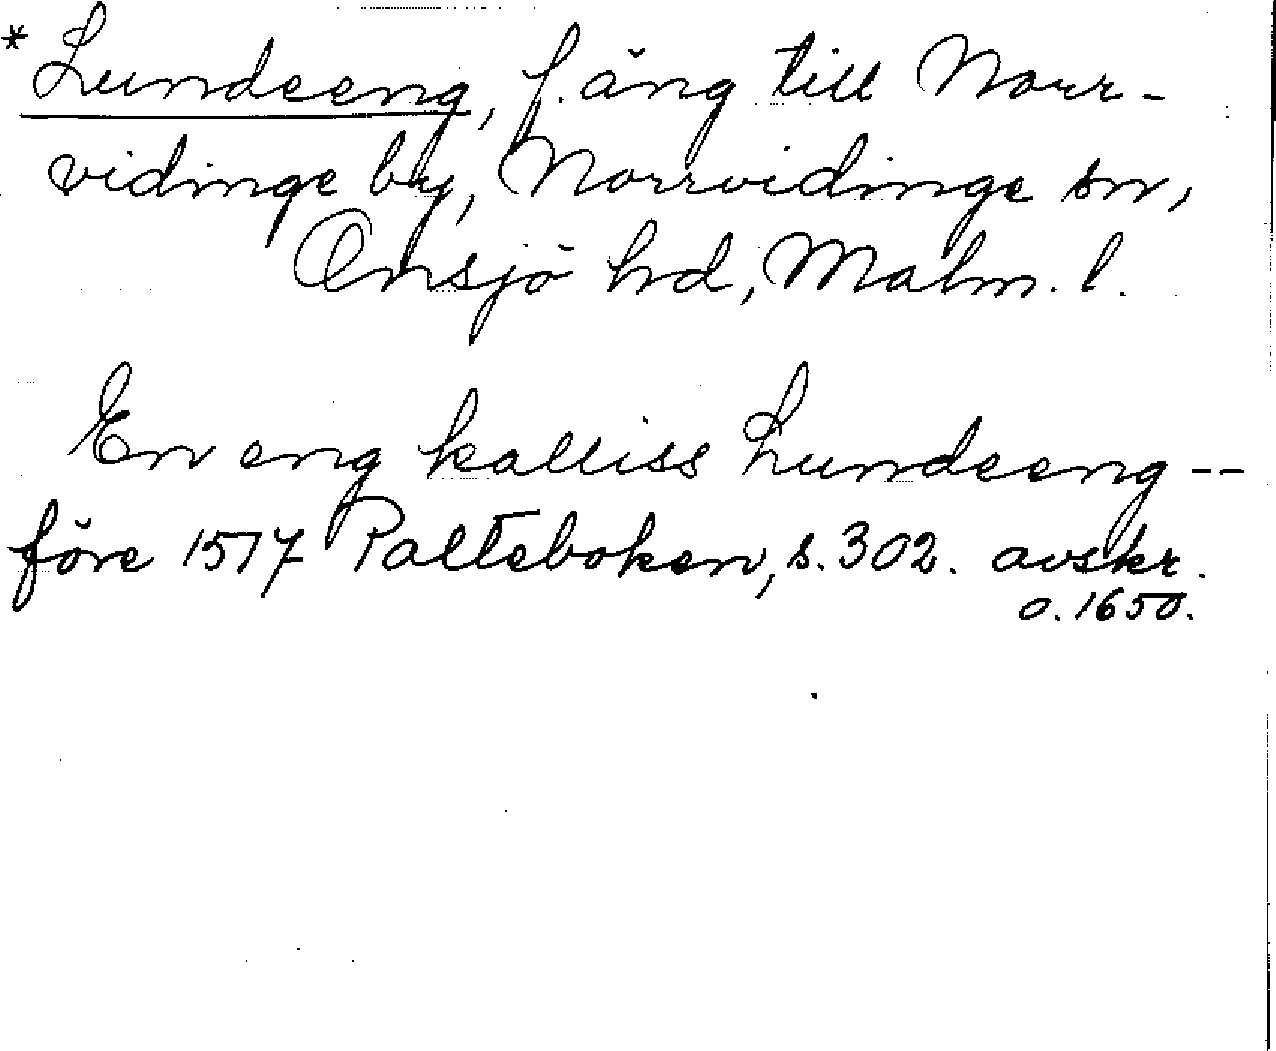 *Lundeeng, f. äng till Norr-
vidinge by, Norrvidinge sn,
Onsjö hd, Malm. l.
En eng kalliss Lundeeng --
före 1517 Palteboken, s. 302. avskr.
o. 1650.